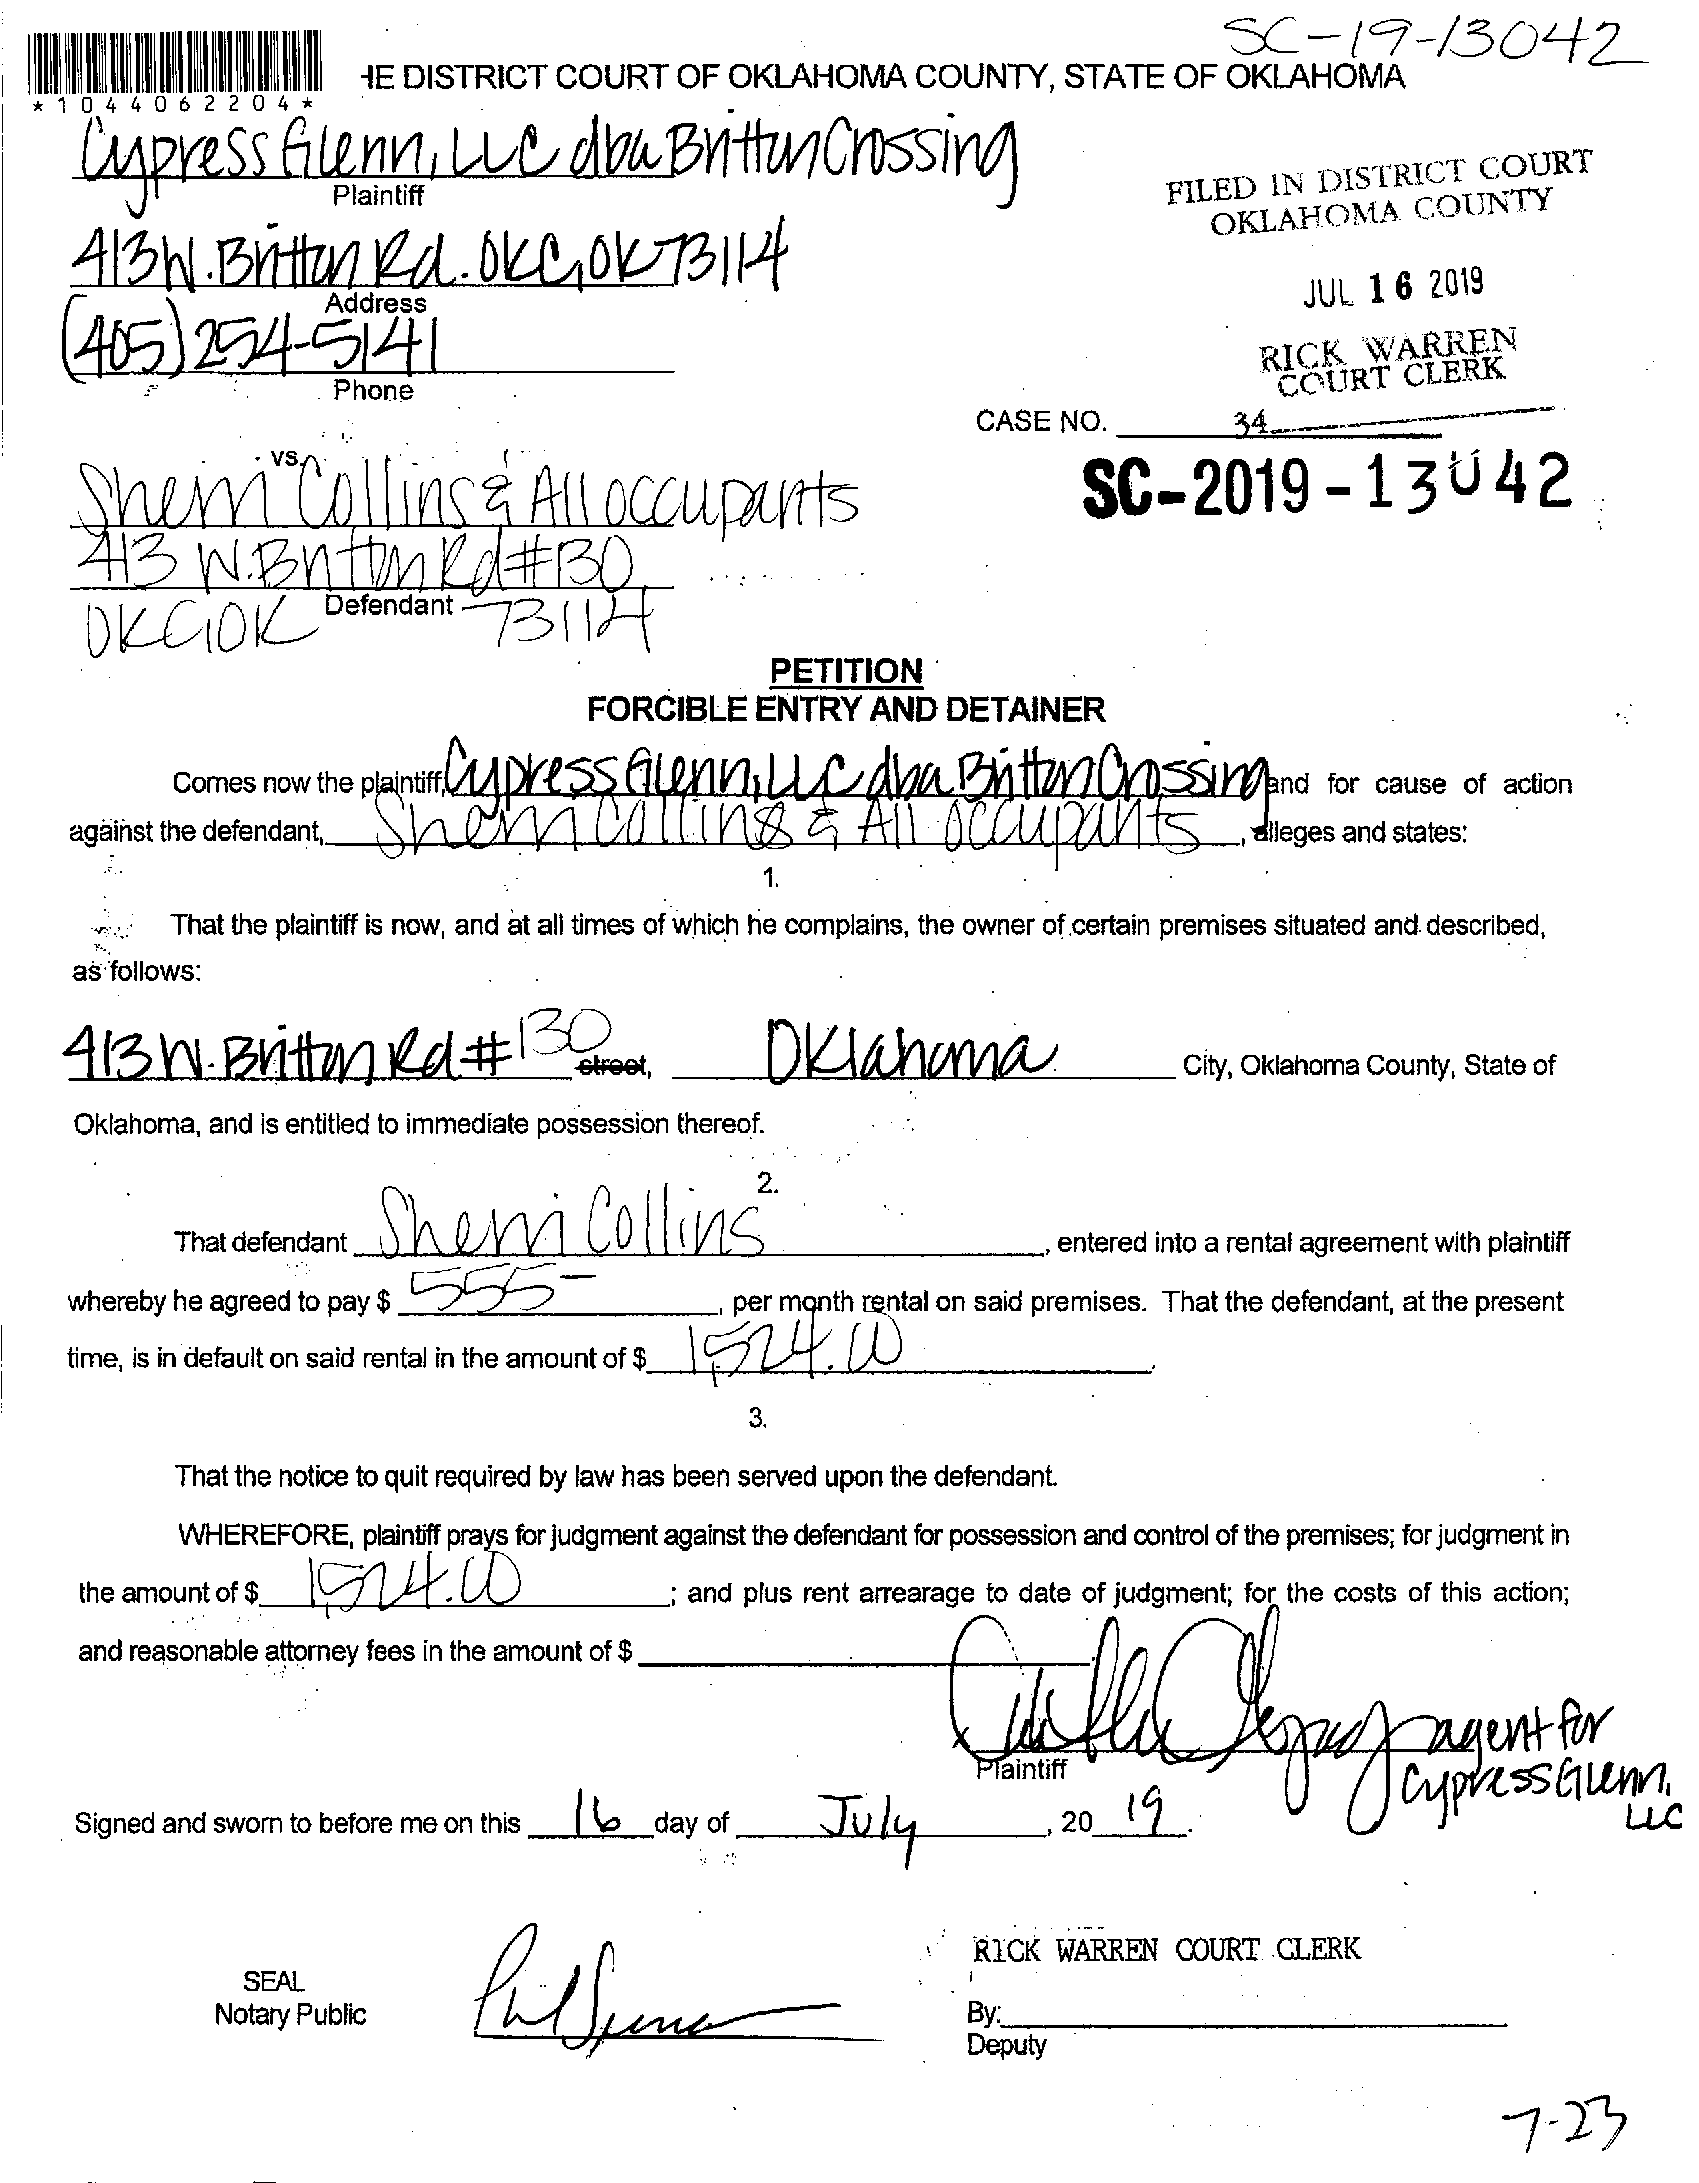 SC-19-13042
HE DISTRICT COURT OF OKLAHOMA COUNTY, STATE OF OKLAHOMA
*1044062204*
Cypress Glenn, LLC dba Britton Crossing
Plaintiff
FILED IN DISTRICT COURT
OKLAHOMA COUNTY
413 W. Britton Rd. OKC, OK 73114
Address
JUL 16 2019
(405) 254-5141
Phone
RICK WARREN
COURT CLERK
CASE NO.
34
vs.
SC-2019-13042
Sherri Collins & All occupants
413 W. Britton Rd #130
Defendant
OKC, OK 73114
PETITION
FORCIBLE ENTRY AND DETAINER
Comes now the plaintiff, Cypress Glenn, LLC dba Britton Crossing and for cause of action
against the defendant, Sherri Collins & All occupants, alleges and states:
1.
That the plaintiff is now, and at all times of which he complains, the owner of certain premises situated and described,
as follows:
413 W. Britton Rd #130 street, Oklahoma City, Oklahoma County, State of
Oklahoma, and is entitled to immediate possession thereof.
2.
That defendant Sherri Collins, entered into a rental agreement with plaintiff
whereby he agreed to pay $ 555-, per month rental on said premises. That the defendant, at the present
time, is in default on said rental in the amount of $ 1,524.00.
3.
That the notice to quit required by law has been served upon the defendant.
WHEREFORE, plaintiff prays for judgment against the defendant for possession and control of the premises; for judgment in
the amount of $ 1,524.00; and plus rent arrearage to date of judgment; for the costs of this action;
and reasonable attorney fees in the amount of $
agent for
Plaintiff
Cypress Glenn, LLC
Signed and sworn to before me on this 16 day of July, 20 19.
RICK WARREN COURT CLERK
SEAL
Notary Public
By:
Deputy
7-23